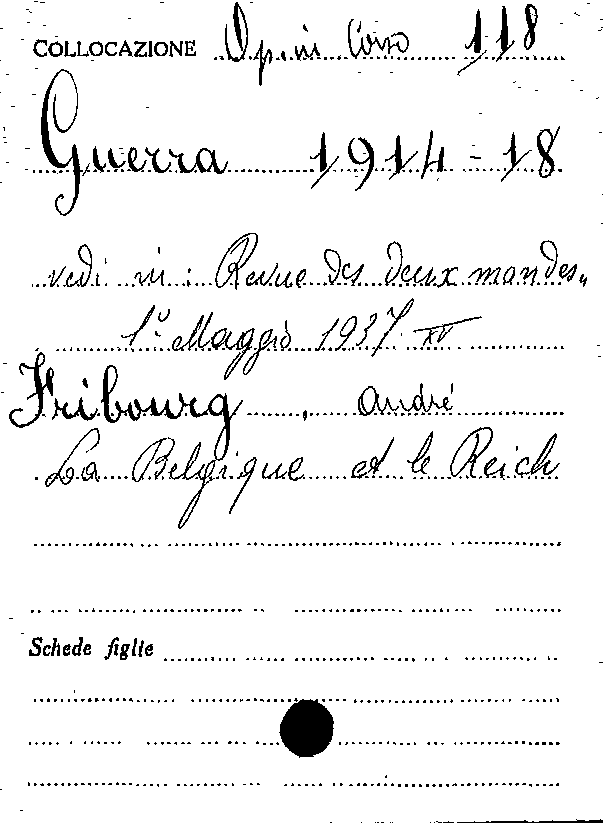 COLLOCAZIONE Op. in Corso 118
Guerra 1914-18
vedi in: Revue des deux mondes„
1° Maggio 1937 XV
Fribourg, André
La Belgique et le Reich
Schede figlie